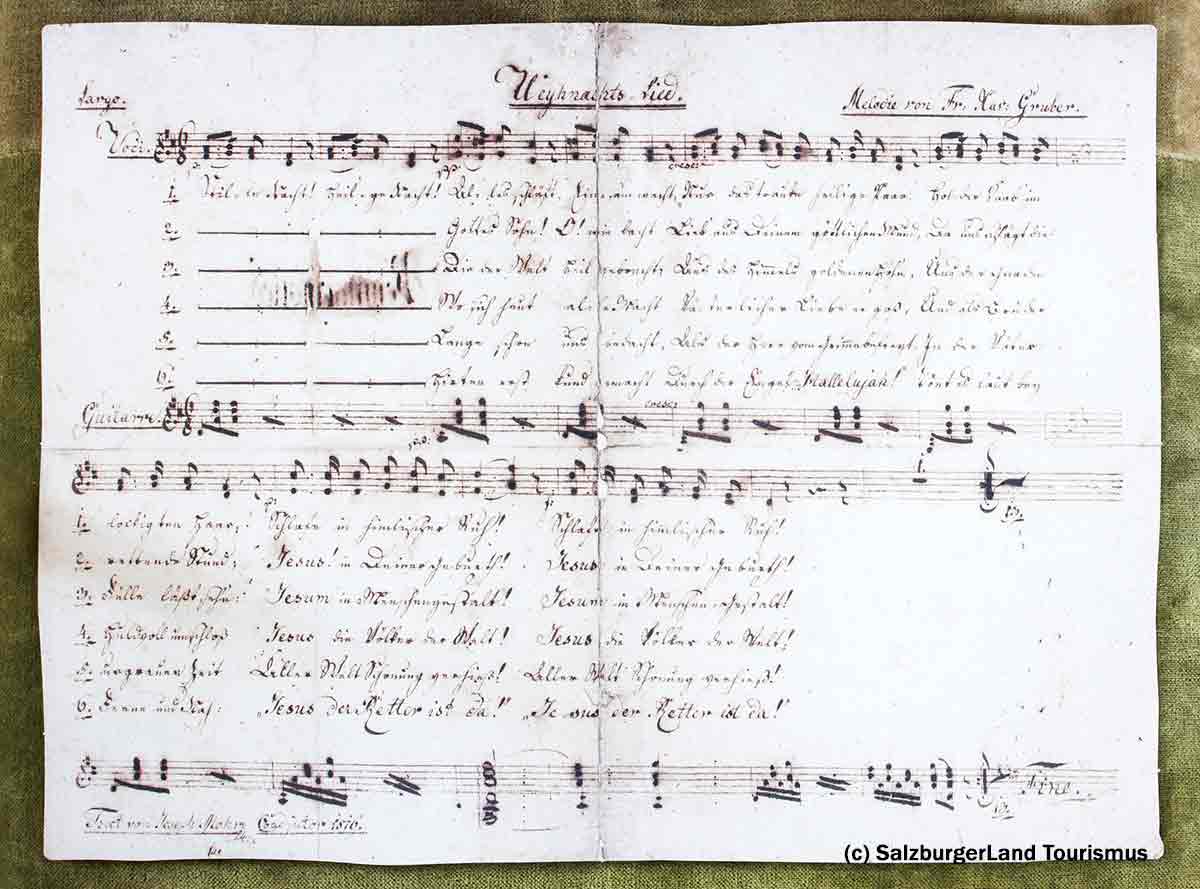 Weyhnachts-Lied.
Largo.
Melodie von Fr. Xav. Gruber.
Voci.
cresc:
1. Stil-le Nacht! Heil-ge Nacht! Al-les schläft. Einsam wacht Nur das traute heilige Paar. Holder Knab im
2. Gottes Sohn! O! wie lacht Lieb aus Deinem göttlichen Mund, Da uns schlägt die
3. Die der Welt Heil gebracht, Aus des Himmels goldenen Höhn, Aus der Gnaden
4. Wo sich heut alle Macht Väterlicher Liebe ergoß, Und als Bruder
5. Lange schon uns bedacht, Als der Herr vom Grimme befreyt, In der Väter
6. Hirten erst kund gemacht Durch der Engel "Hallelujah!" Tönt es laut bey
Guitarre.
cresc:
1. lockigten Haar; Schlafe in himlischer Ruh! Schlafe in himlischer Ruh!
2. rettende Stund; Jesus! in Deiner Geburth! Jesus in Deiner Geburth!
3. Fülle läßt sehn: Jesum in Menschengestalt! Jesum in Menschen-Gestalt!
4. Huldvoll umschloß Jesus die Völker der Welt! Jesus die Völker der Welt!
5. urgrauer Zeit Aller Welt Schonung verhieß! Aller Welt Schonung verhieß!
6. Ferne und Nah: „Jesus der Retter ist da!" „Jesus der Retter ist da!"
Fine.
Text von Joseph Mohr Coadjutor 1816.
(c) SalzburgerLand Tourismus